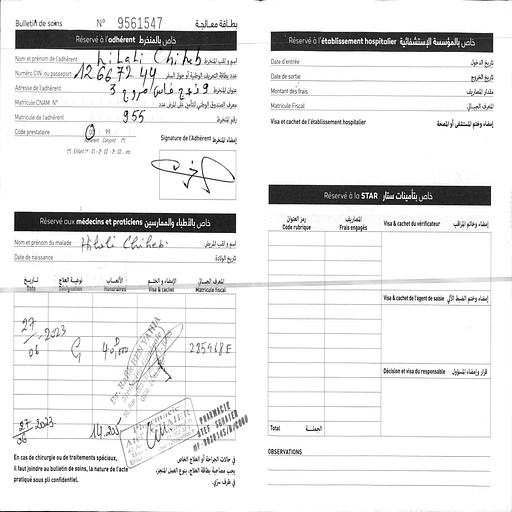 Bulletin de soins N° 9561547 بطاقة معالجة
Réservé à l'adhérent خاص بالمنخرط
Nom et prénom de l'adhérent Hilali Chiheb اسم و لقب المنخرط
Numéro CIN ou passeport 12667244 عدد بطاقة التعريف الوطنية أو جواز السفر
Adresse de l'adhérent عنوان المنخرط
Matricule CNAM N°
Matricule de l'adhérent 955 رقم المنخرط
Code prestataire 00 99
Adhérent Conjoint (*)
(*) Enfant 1er : 01 - 2è : 02 - 3è : 03 ... etc
Signature de l'Adhérent إمضاء المنخرط
Réservé aux médecins et praticiens خاص بالأطباء والممارسين
Nom et prénom du malade Hilali Chiheb اسم و لقب المريض
Date de naissance تاريخ الولادة
تاريخ نوعية العلاج الأتعاب الإمضاء و الختم المعرف الجبائي
Date Désignation Honoraires Visa & cachet Matricule fiscal
27/06/2023 G 40,000
BEN YAHIA
27/06 2023 14.205
Pharmacie
PHARMACIE
ATEF
En cas de chirurgie ou de traitements spéciaux,
il faut joindre au bulletin de soins, la nature de l'acte
pratiqué sous pli confidentiel.
في حالات الجراحة أو العلاج الخاص
يجب مصاحبة بطاقة العلاج، بنوع العمل المنجز،
في ظرف سري.
Réservé à l'établissement hospitalier خاص بالمؤسسة الإستشفائية
Date d'entrée تاريخ الدخول
Date de sortie تاريخ الخروج
Montant des frais مقدار المصاريف
Matricule Fiscal المعرف الجبائي
Visa et cachet de l'établissement hospitalier إمضاء وختم المستشفى أو المصحة
Réservé à la STAR خاص بتأمينات ستار
رمز العنوان المصاريف
Code rubrique Frais engagés
Visa & cachet du vérificateur إمضاء وخاتم المراقب
Visa & cachet de l'agent de saisie إمضاء وختم الضبط الآلي
Décision et visa du responsable قرار وإمضاء المسؤول
Total الجملة
OBSERVATIONS